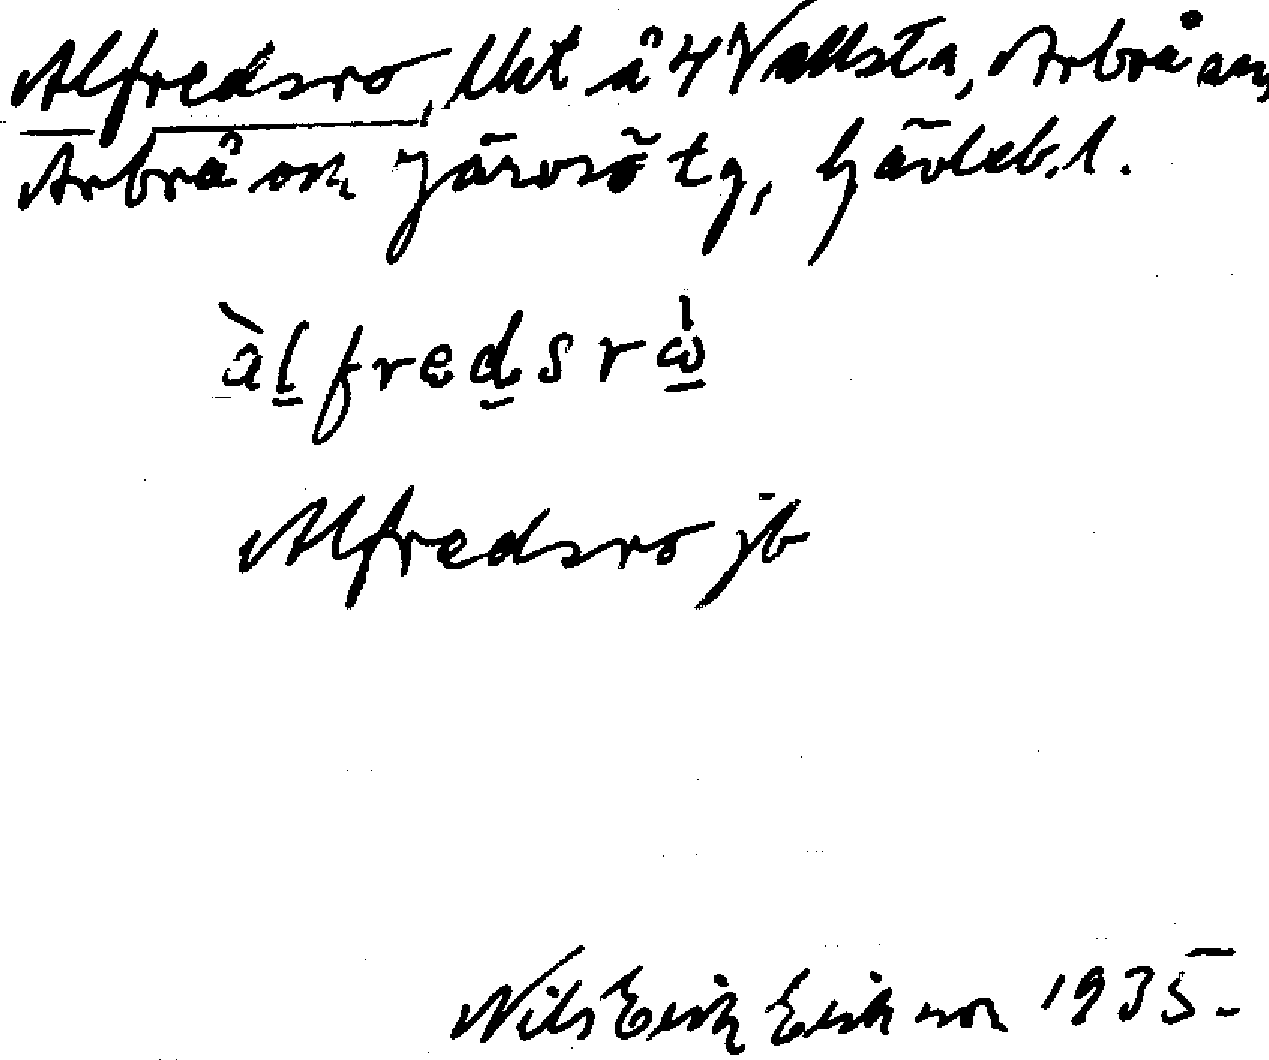 Alfredsro, lht å 4 Vallsta, Arbrå sn,
Arbrå och Järvsö tg, Gävleb. l.
àl̲fred̲srὼ̲
Alfredsro jb
Nils Erik Eriksson 1935.